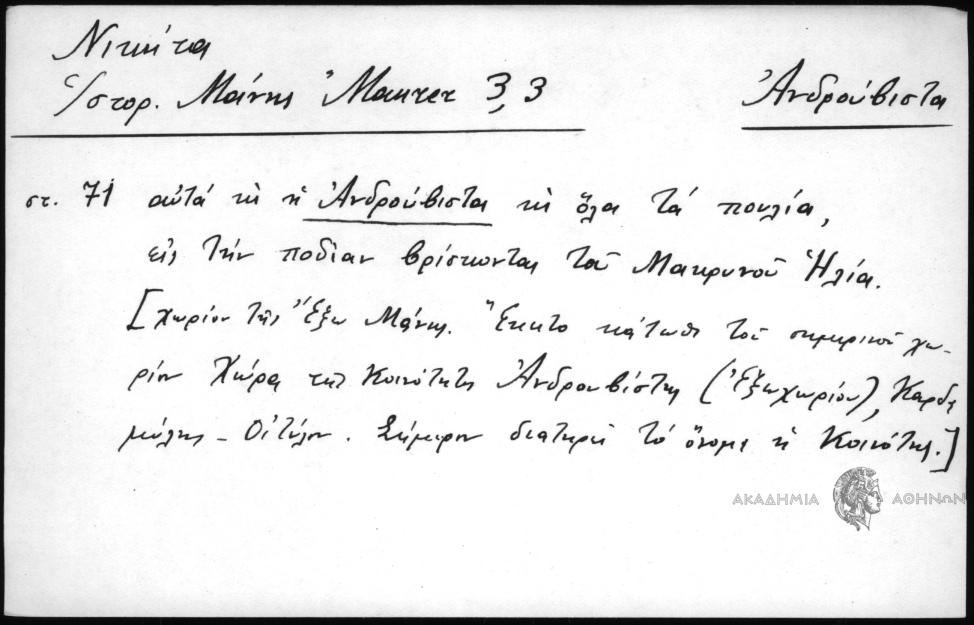 Νικήτα
Ἱστορ. Μάνης 3, 3
Ἀνδρούβιστα
στ. 71 αὐτά κὶ ἡ Ἀνδρούβιστα κὶ ὅλα τά πουλία,
εἰς τήν ποδίαν βρίσκονται τοῦ Μακρυνοῦ Ἠλία.
[χωρίον τῆς Ἔξω Μάνης. Ἔκειτο κάτωθι τοῦ σημερινοῦ χω-
ρίου Χώρα τῆς Κοινότητος Ἀνδρουβίστης (Ἐξωχωρίου), Καρδα
μύλης - Οἰτύλου. Σήμερον διατηρεῖ τό ὄνομα ἡ Κοινότης.]
ΑΚΑΔΗΜΙΑ ΑΘΗΝΩΝ